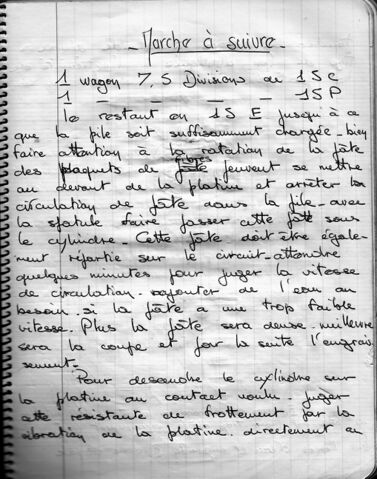 _ Marche à suivre _
1 wagon 7,5 Divisions de 15 C
1 _ _ _ _ 15 P
le restant en 15 E jusqu'à ce
que la pile soit suffisamment chargée - bien
faire attention à la rotation de la pâte
des paquets de fibres pâte peuvent se mettre
au devant de la platine et arrêter la
circulation de pâte dans la pile - avec
la spatule faire passer cette pâte sous
le cylindre - Cette pâte doit être égale-
ment répartie sur le circuit - attendre
quelques minutes pour juger la vitesse
de circulation - rajouter de l'eau au
besoin - si la pâte a une trop faible
vitesse. Plus la pâte sera dense - meilleure
sera la coupe et par la suite l'engrais
sement -
Pour descendre le cylindre sur
la platine au contact voulu - juger
cette résistante de frottement par la
vibration de la platine. directement au